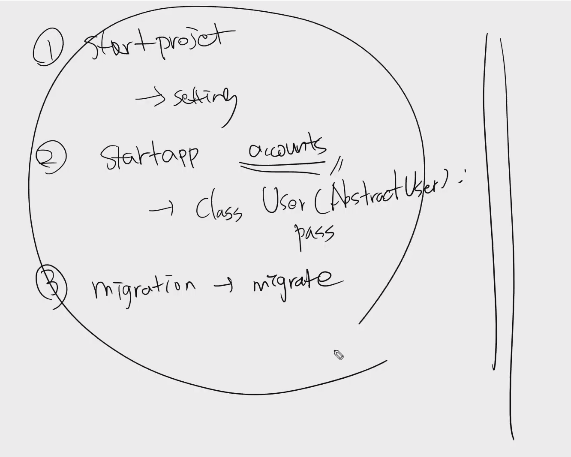 ① startprojet
→ setting
② startapp accounts
→ class User(AbstractUser):
pass
③ migration → migrate